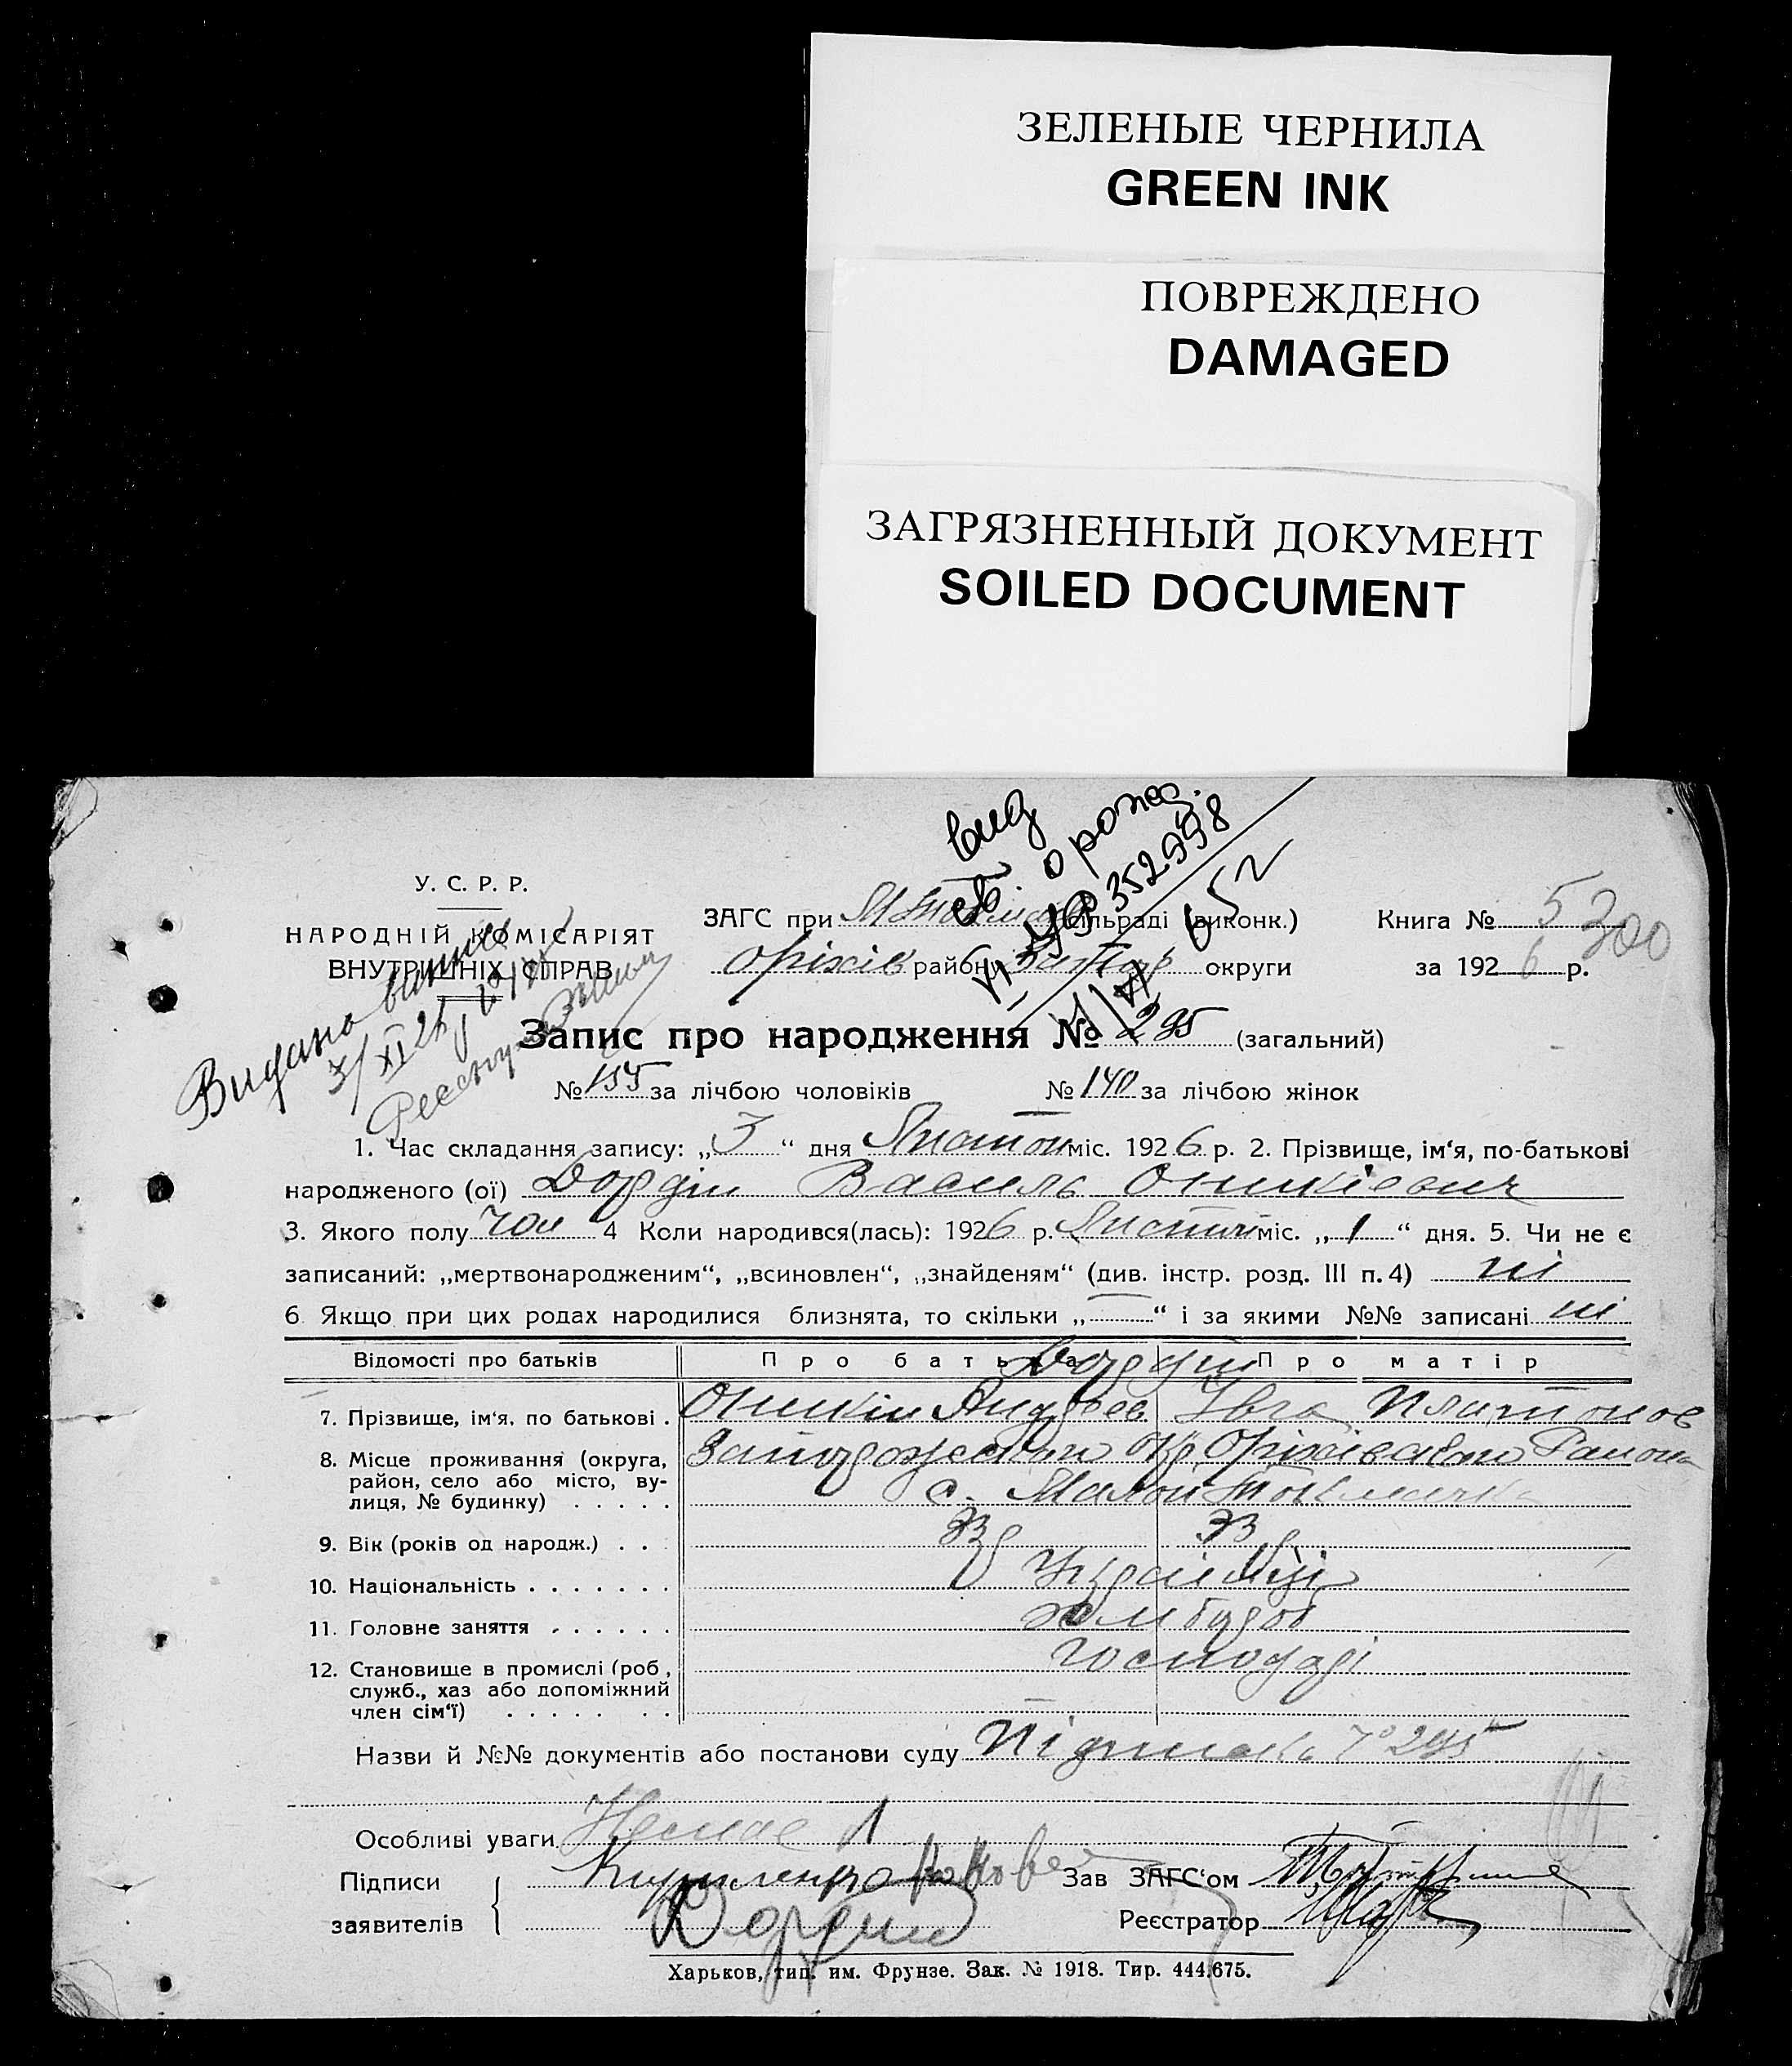 ЗЕЛЕНЫЕ ЧЕРНИЛА
GREEN INK
ПОВРЕЖДЕНО
DAMAGED
ЗАГРЯЗНЕННЫЙ ДОКУМЕНТ
SOILED DOCUMENT
вид
св. о рожд.
У. С. Р. Р.
НАРОДНІЙ КОМІСАРІЯТ
ВНУТРІШНІХ СПРАВ
Видано
ЗАГС при сільраді (виконк.)
Книга № 5
300
Оріхів району округи
за 1926 р.
Запис про народження № 295 (загальний)
№ 155 за лічбою чоловіків № 140 за лічбою жінок
1. Час складання запису: „3“ дня Листоп міс. 1926 р. 2. Прізвище, ім‘я, по-батькові
народженого (ої) Дордій Василь Оникієвич
3. Якого полу чол 4 Коли народився(лась): 1926 р. Листоп міс. „1“ дня. 5. Чи не є
записаний: „мертвонародженим“, „всиновлен“, „знайденям“ (див. інстр. розд. III п. 4) ні
6 Якщо при цих родах народилися близнята, то скільки „—“ і за якими №№ записані ні
Відомості про батьків Про батька Про матір
Дордій
7. Прізвище, ім‘я, по батькові . Оникій Андреев Івга Платонов
8. Місце проживання (округа,
район, село або місто, вулиця, № будинку) . . . . .
Запорожской Окр Оріхівского Района
с. Малой Токмачка
9. Вік (років од народж.) . . . 33 33
10. Національність . . . . . . . Українці
11. Головне заняття . . . . . . хлібороб
12. Становище в промислі (роб.,
служб., хаз або допоміжний
член сім‘ї) . . . . . . .
господарі
Назви й №№ документів або постанови суду Підписка № 295
Особливі уваги Немає
Підписи
заявителів
Зав ЗАГС‘ом
Дордий
Реєстратор
Харьков, тип. им. Фрунзе. Зак. № 1918. Тир. 444.675.